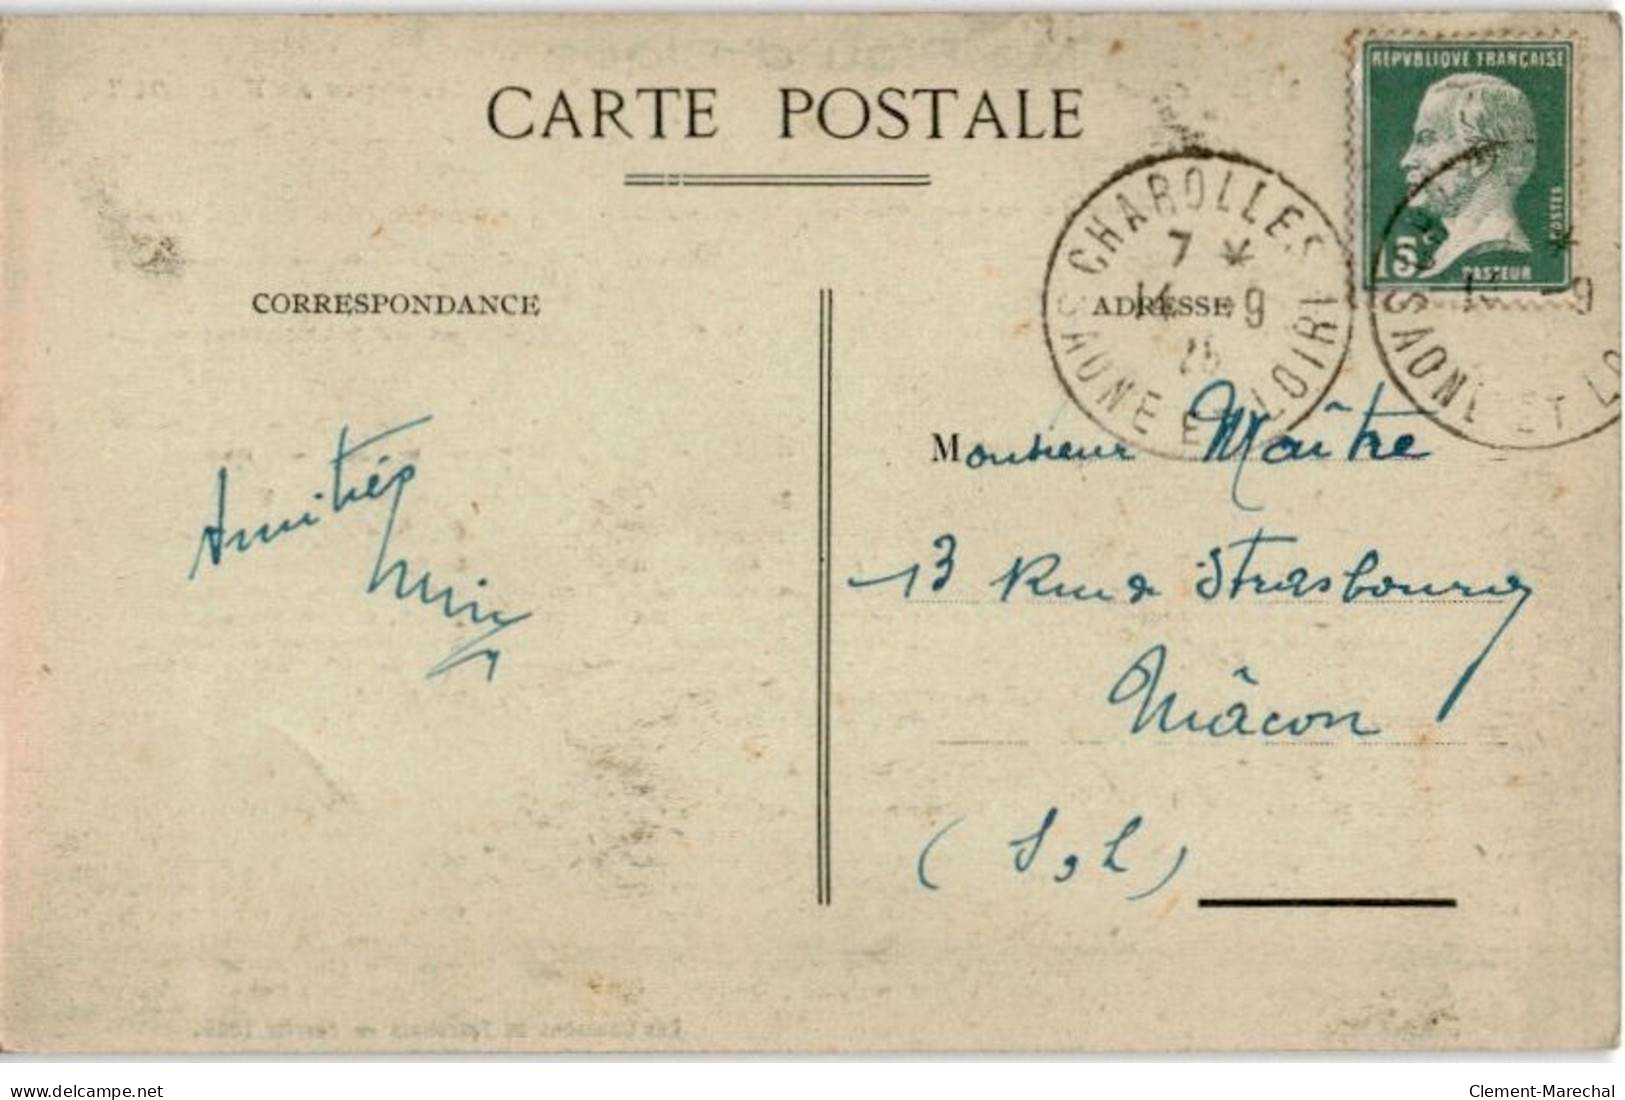 CARTE POSTALE
REPVBLIQVE FRANÇAISE
POSTES
15
PASTEUR
CHAROLLES
7 *
14 -9
SAONE ET LOIRE
*
-9
SAONE ET LO
CORRESPONDANCE
ADRESSE
Amitiés
Monsieur Maître
13 Rue de Strasbourg
Mâcon
(S, L)
delcampe.net
Clement-Marechal